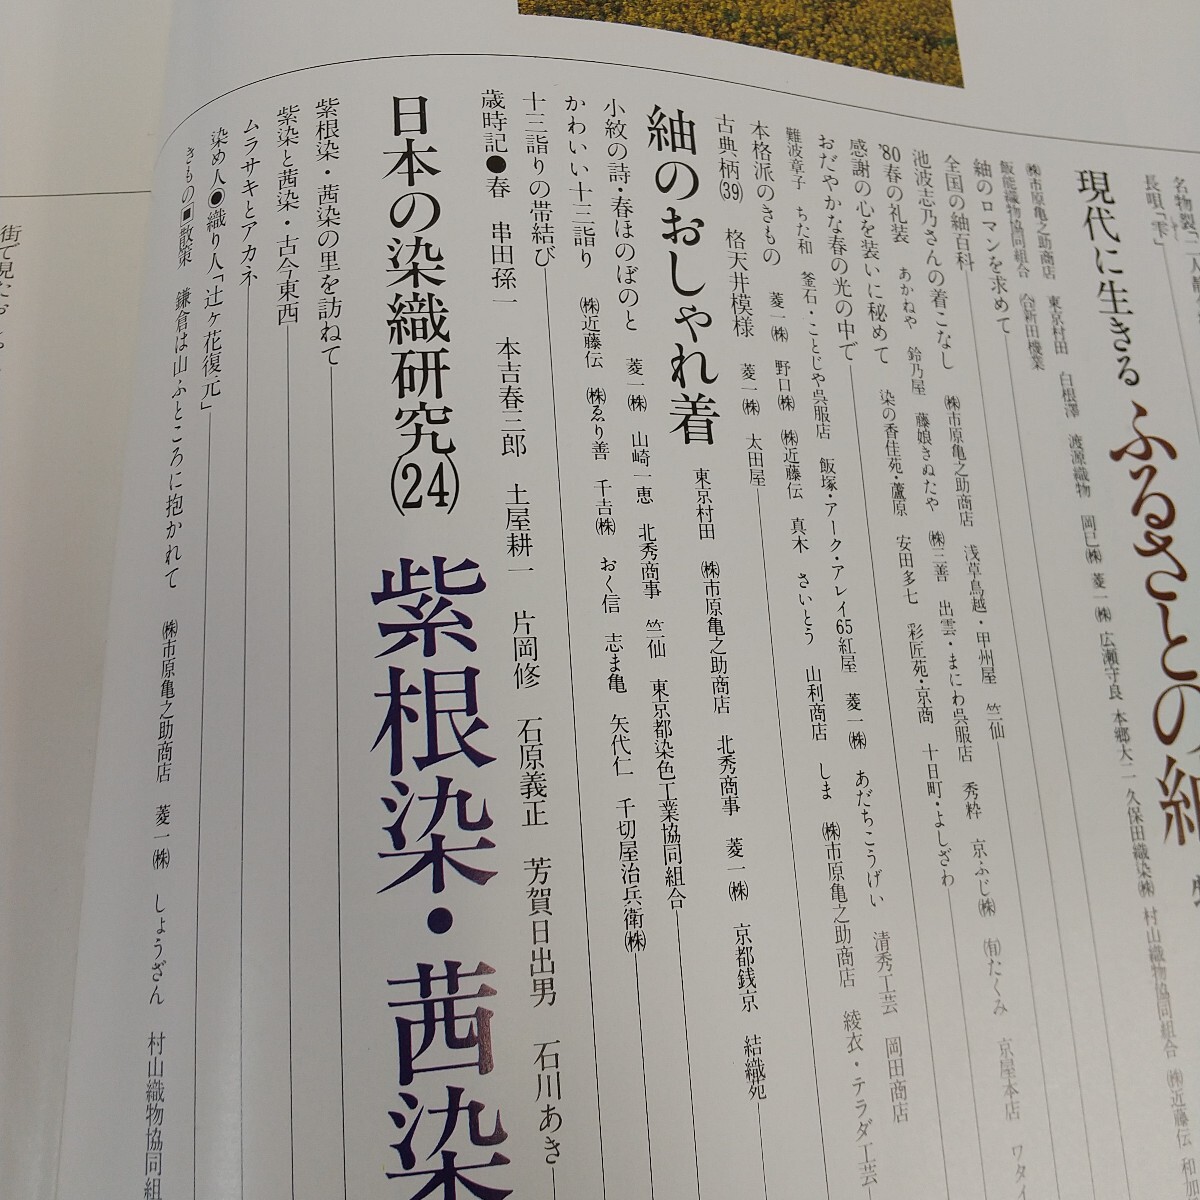 長唄「雫」
現代に生きる ふるさとの
㈱市原亀之助商店 東京村田 白根澤 渡源織物 岡巳㈱ 菱一㈱ 広瀬守良 本郷大二 久保田織染㈱ 村山織物協同組合 ㈱近藤伝
飯能織物協同組合
紬のロマンを求めて
全国の紬百科 ㈱市原亀之助商店 浅草鳥越・甲州屋 竺仙
池波志乃さんの着こなし 鈴乃屋 藤娘きぬたや ㈱三善 出雲・まにわ呉服店 秀粋 京ふじ㈱ ㈲たくみ 京屋本店
'80春の礼装 あかねや 染の香佳苑・蘆原 安田多七 彩匠苑・京商 十日町・よしざわ
感謝の心を装いに秘めて
おだやかな春の光の中で
難波章子 ちた和 釜石・ことじや呉服店 飯塚・アーク・アレイ65紅屋 菱一㈱ あだちこうげい 清秀工芸 岡田商店
本格派のきもの 菱一㈱ 野口㈱ ㈱近藤伝 真木 さいとう 山利商店 しま ㈱市原亀之助商店 綾衣・テラダ工芸
古典柄(39) 格天井模様 菱一㈱ 太田屋
紬のおしゃれ着 東京村田 ㈱市原亀之助商店 北秀商事 菱一㈱ 京都銭京 結織苑
小紋の詩・春ほのぼのと 菱一㈱ 山崎一恵 北秀商事 竺仙 東京都染色工業協同組合
かわいい十三詣り ㈱近藤伝 ㈱ゑり善 千吉㈱ おく信 志ま亀 矢代仁 千切屋治兵衛㈱
十三詣りの帯結び
歳時記●春 串田孫一 本吉春三郎 土屋耕一 片岡修 石原義正 芳賀日出男 石川あき
日本の染織研究(24) 紫根染・茜染
紫根染・茜染の里を訪ねて
紫染と茜染・古今東西
ムラサキとアカネ
染め人◉織り人「辻ヶ花復元」
きもの▣散策 鎌倉は山ふところに抱かれて ㈱市原亀之助商店 菱一㈱ しょうざん 村山織物協同組